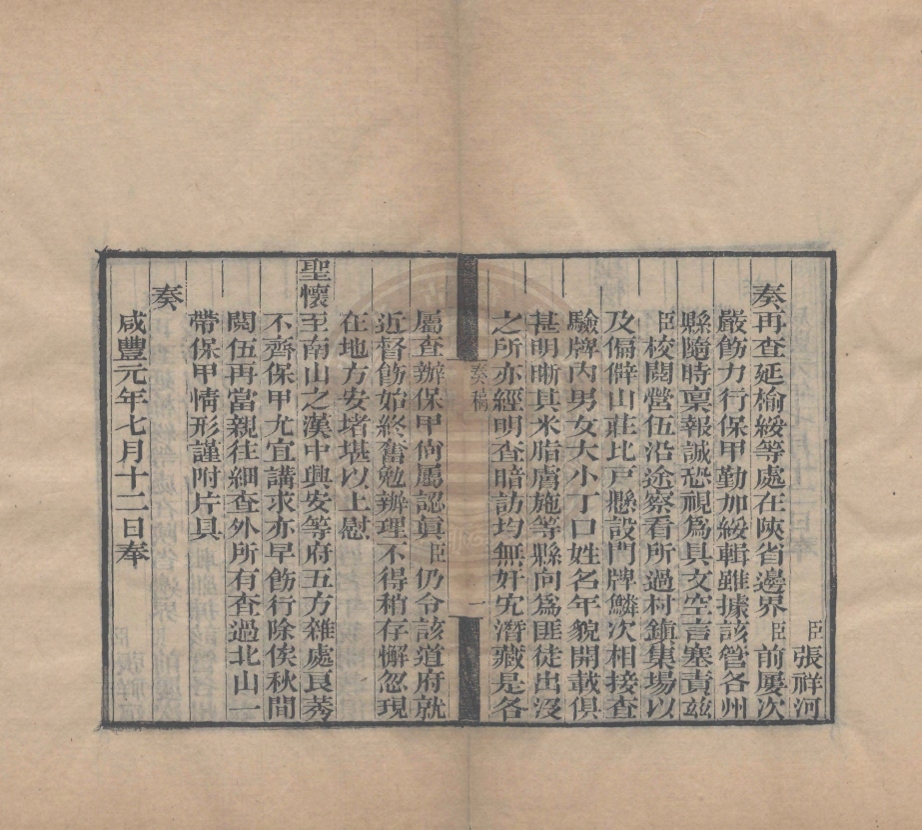 臣張祥河
奏再查延榆綏等處在陝省邊界臣前屢次
嚴飭力行保甲勤加綏輯雖據該管各州
縣隨時稟報誠恐視爲具文空言塞責茲
臣校閱營伍沿途察看所過村鎮集場以
及偏僻山莊比戶懸設門牌鱗次相接查
驗牌內男女大小丁口姓名年貌開載俱
甚明晰其米脂膚施等縣向爲匪徒出沒
之所亦經明查暗訪均無奸宄潛藏是各
奏稿
一
屬查辦保甲尙屬認眞臣仍令該道府就
近督飭始終奮勉辦理不得稍存懈忽現
在地方安堵堪以上慰
聖懷至南山之漢中興安等府五方雜處良莠
不齊保甲尤宜講求亦早飭行除俟秋間
閱伍再當親往細查外所有查過北山一
帶保甲情形謹附片具
奏
咸豐元年七月十二日奉